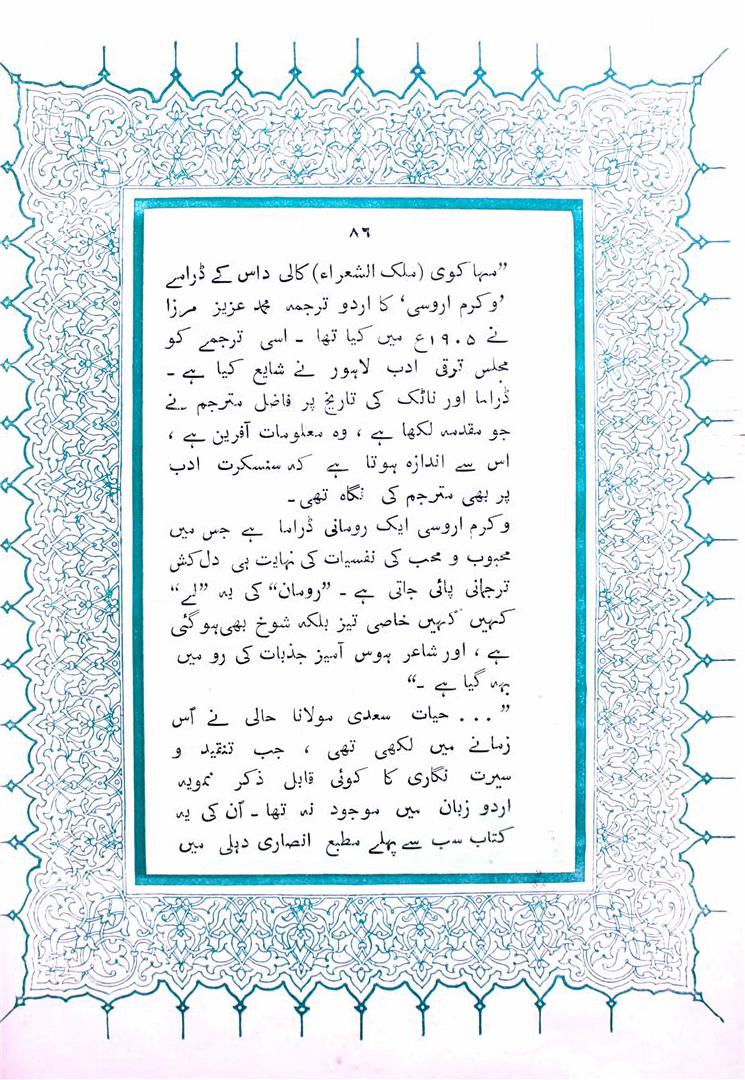 ۸۶
”مہا کوی (ملک الشعراء) کالی داس کے ڈرامے
’وکرم اروسی‘ کا اردو ترجمہ محمد عزیز مرزا
نے ۱۹۰۵ع میں کیا تھا ۔ اسی ترجمے کو
مجلس ترقی ادب لاہور نے شایع کیا ہے ۔
ڈراما اور ناٹک کی تاریخ پر فاضل مترجم نے
جو مقدمہ لکھا ہے ، وہ معلومات آفرین ہے ،
اس سے اندازہ ہوتا ہے کہ سنسکرت ادب
پر بھی مترجم کی نگاہ تھی ۔
وکرم اروسی ایک رومانی ڈراما ہے جس میں
محبوب و محب کی نفسیات کی نہایت ہی دل کش
ترجمانی پائی جاتی ہے ۔ ”رومان“ کی یہ ”لے“
کہیں کہیں خاصی تیز بلکہ شوخ بھی ہوگئی
ہے ، اور شاعر ہوس آمیز جذبات کی رو میں
بہہ گیا ہے ۔“
” . . . حیات سعدی مولانا حالی نے اُس
زمانے میں لکھی تھی ، جب تنقید و
سیرت نگاری کا کوئی قابل ذکر نمویہ
اردو زبان میں موجود نہ تھا ۔ اُن کی یہ
کتاب سب سے پہلے مطبع انصاری دہلی میں